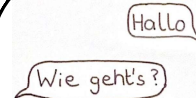 Hallo
Wie geht's?